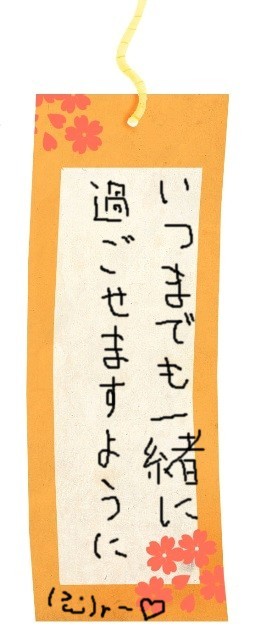 いつまでも一緒に
過ごせますように